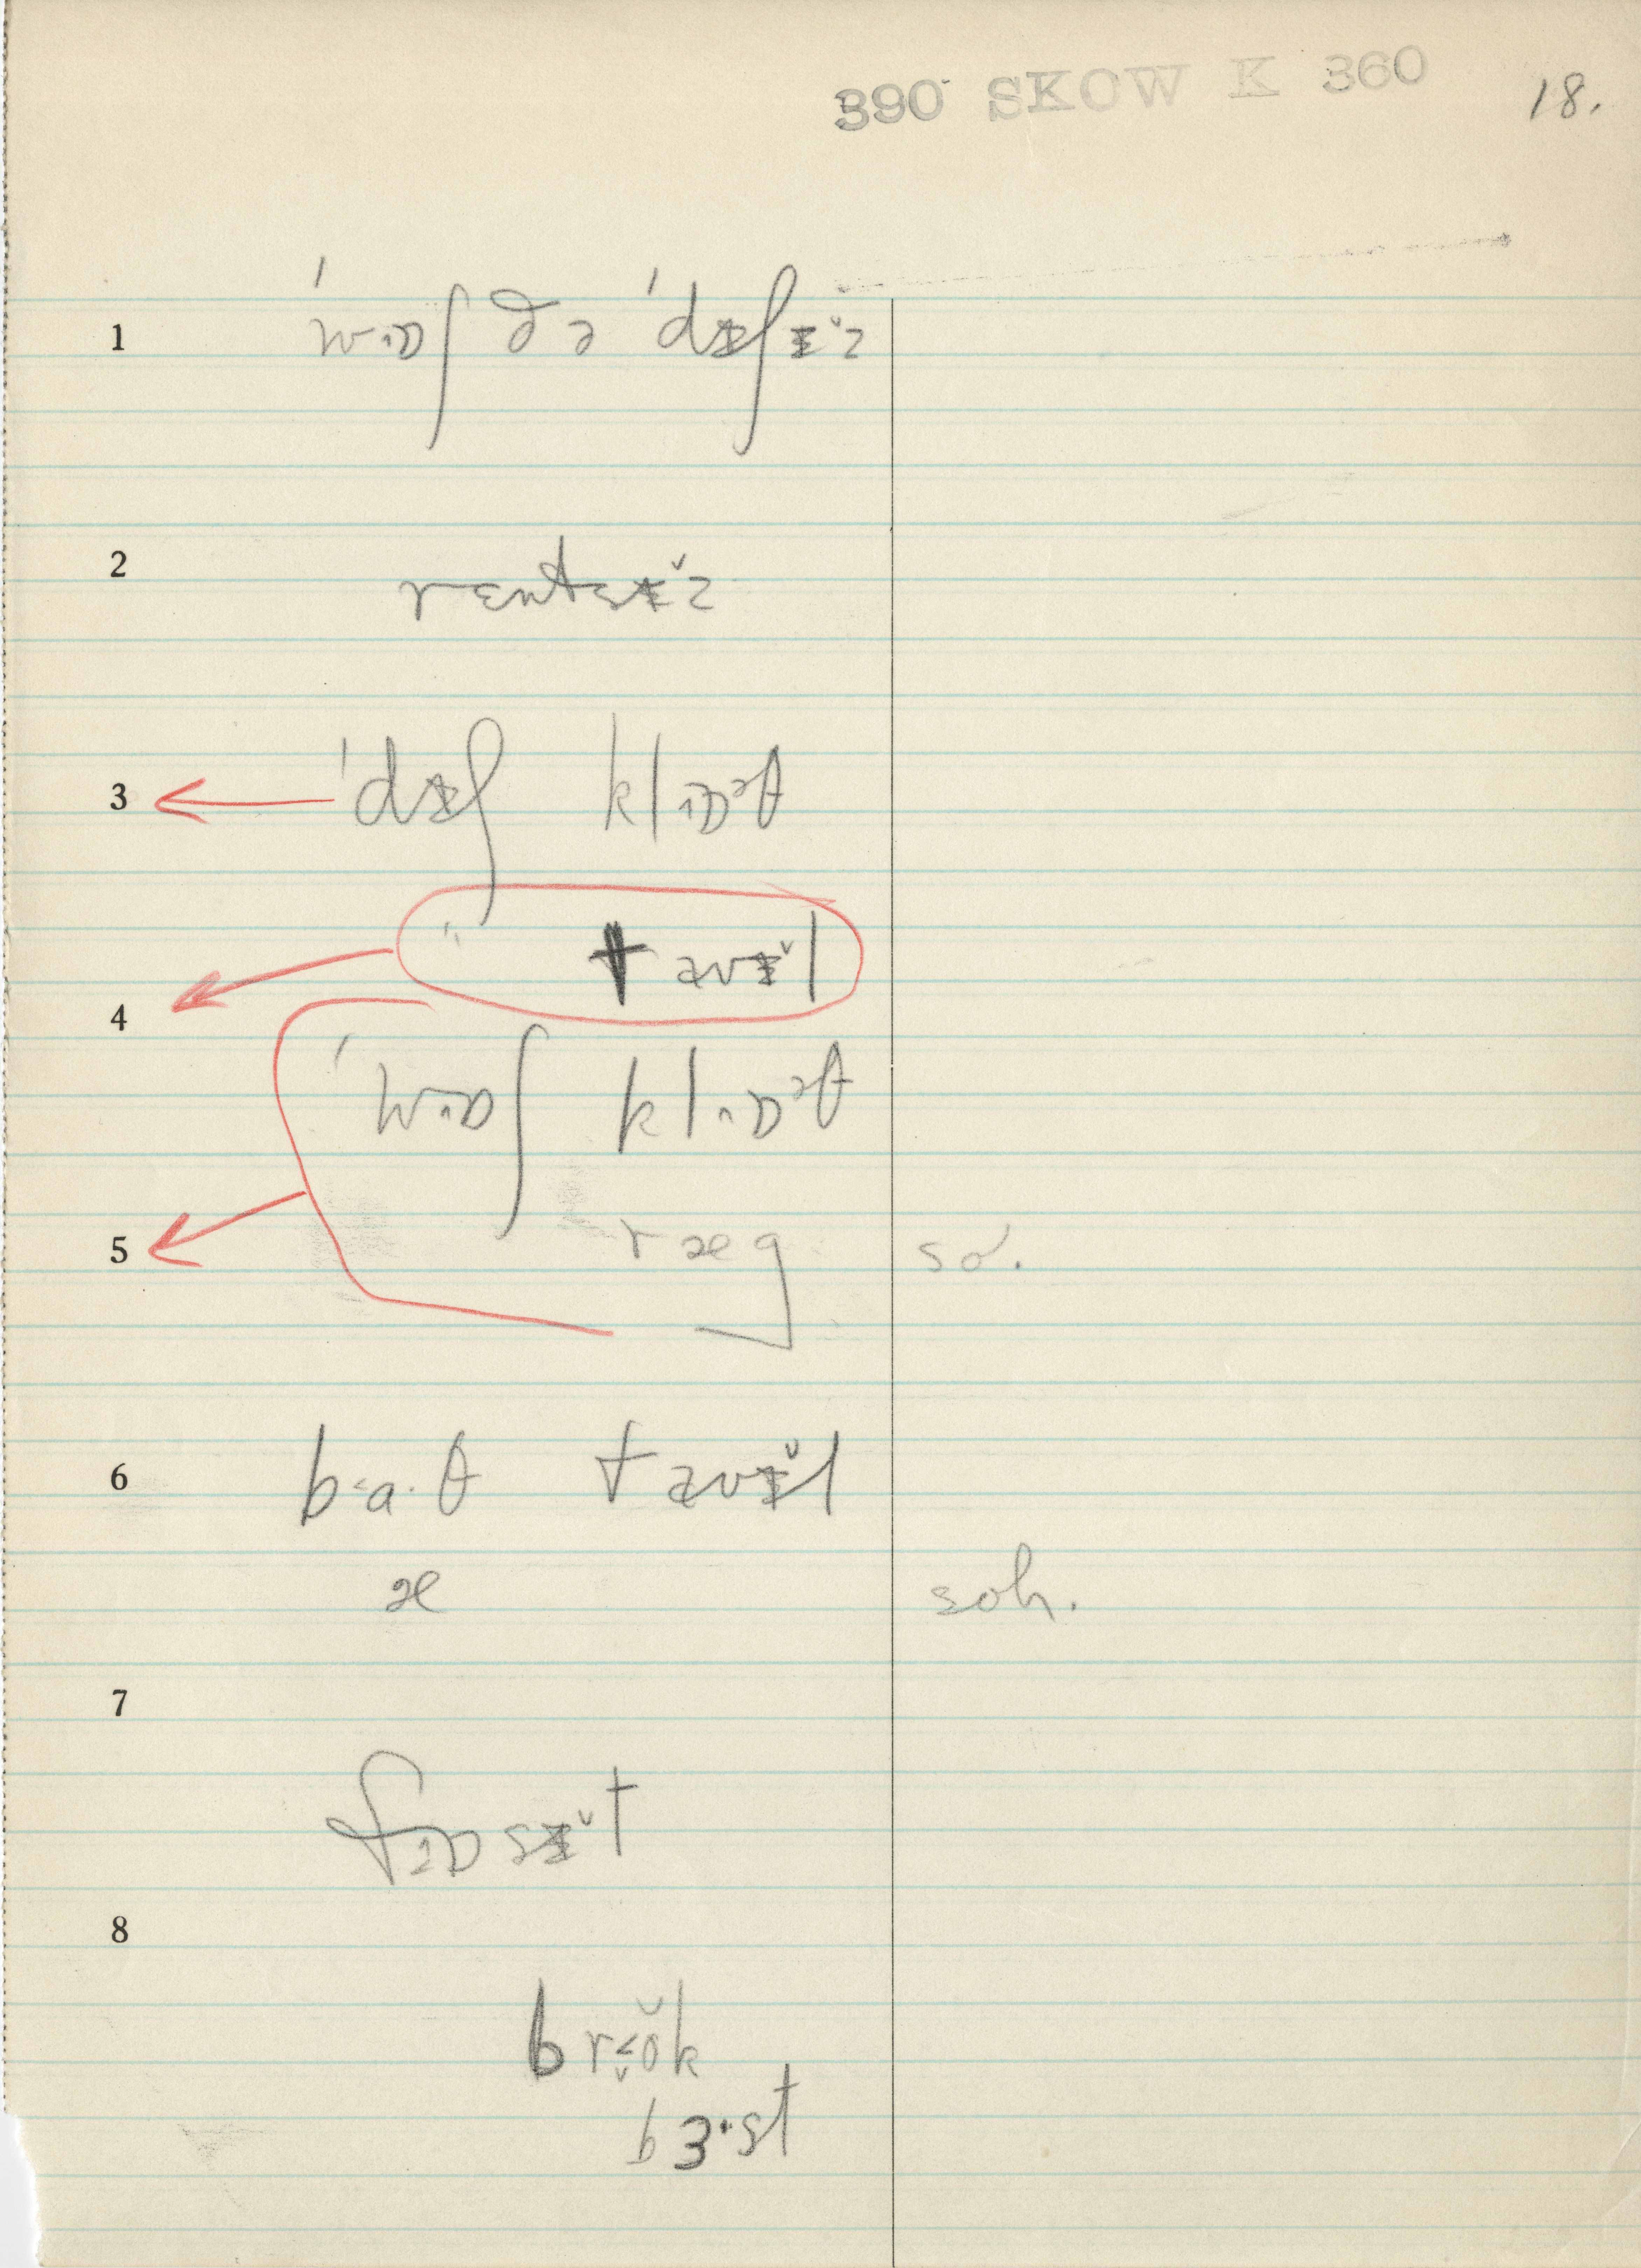 390 SKOW K 360
18.
1 ˈwɒʃ ðə ˈdɪʃɪ̆z
2 rentsɪ̆z
3 ˈdɪʃ klɒᵊθ
" tavɪ̆l
4
ˈwɒʃ klɒᵊθ
5 ræg sơ.
6 ba·θ tavɪ̆l
æ soh.
7
fɒsɪ̆t
8
brŏk
bɜ·st